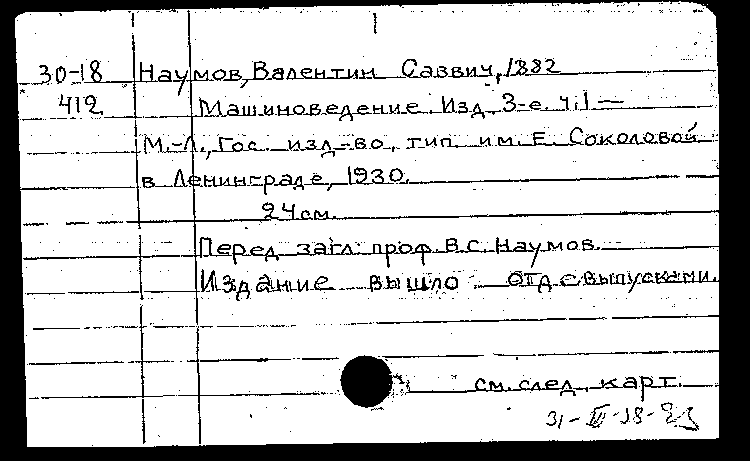 30-18 Наумов, Валентин Саввич, 1882
412 Машиноведение. Изд. 3-е. Ч.1 —
М.-Л., Гос. изд-во, тип. им. Е. Соколовой
в Ленинграде, 1930.
24 см.
Перед загл: проф. В.С. Наумов.
Издание вышло отд. выпусками.
см. след. карт.